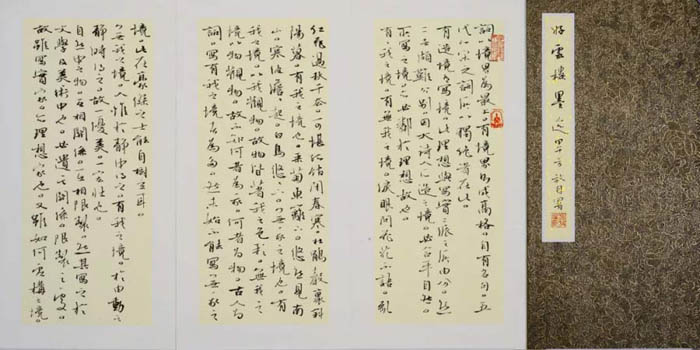 好雲樓墨
詞以境界為最上。有境界則成高格。自有名句。五
代北宋之詞所以獨絕者在此。
有造境有寫境。此理想與寫實二派之所由分。然
二者頗難分別。因大詩人所造之境必合乎自然。
所寫之境必鄰於理想故也。
有有我之境。有無我之境。淚眼問花花不語。亂
紅飛過秋千去。可堪孤館閉春寒。杜鵑聲裏斜
陽暮。有我之境也。采菊東籬下。悠然見南
山。寒波澹澹起。白鳥悠悠下。無我之境也。有
我之境。以我觀物。故物皆著我之色彩。無我之
境。以物觀物。故不知何者為我。何者為物。古人為
詞。寫有我之境者為多。然未始不能寫無我之
境。此在豪傑之士能自樹立耳。
無我之境。人惟於靜中得之。有我之境。於由動之
靜時得之。故一優美。一宏壯也。
自然中之物。互相關係。互相限制。然其寫之於
文學及美術中也。必遺其關係。限制之處。
故雖寫實家。亦理想家也。又雖如何虛構之境。